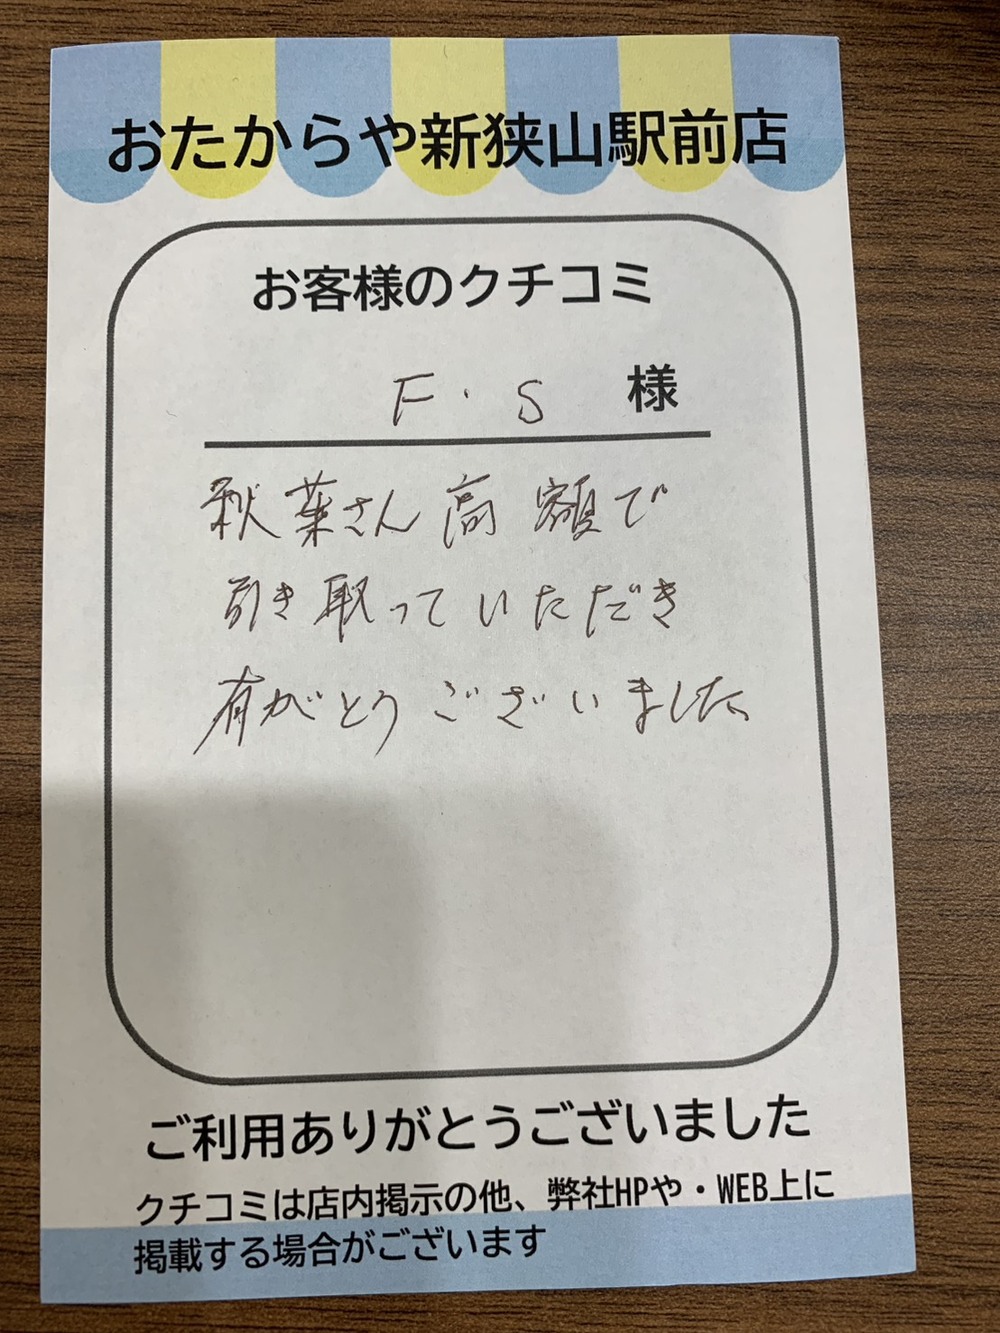 おたからや新狭山駅前店
お客様のクチコミ
F・S 様
秋葉さん高額で
引き取っていただき
有がとうございました、
ご利用ありがとうございました
クチコミは店内掲示の他、弊社HPや・WEB上に
掲載する場合がございます